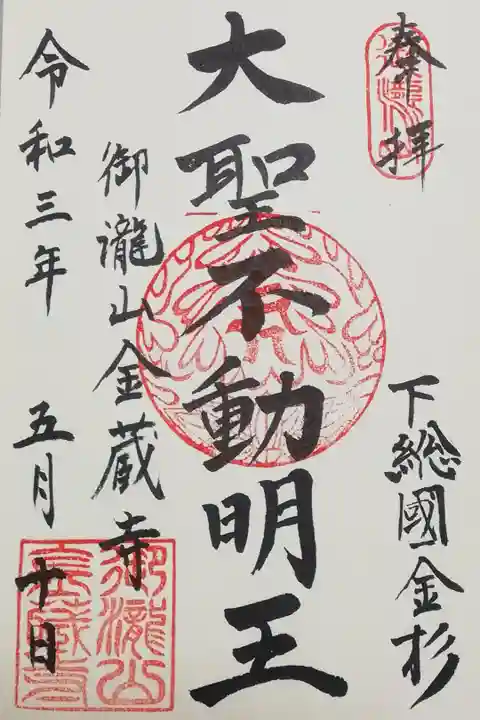 奉拝
下総國金杉
大聖不動明王
御瀧山金蔵寺
令和三年 五月 十日
御瀧山
金蔵寺